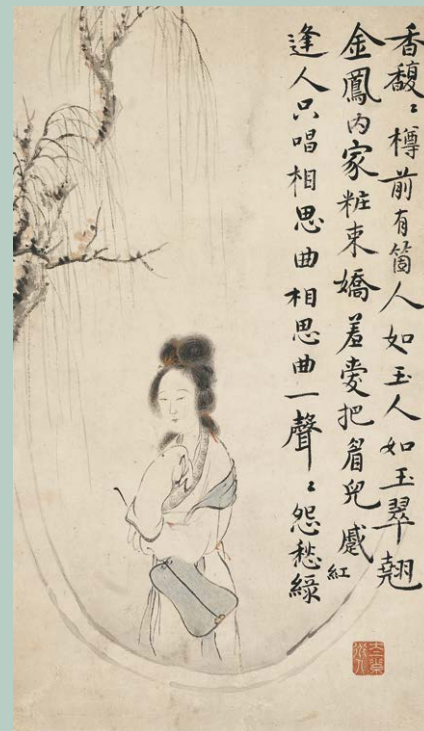 香馥〻樽前有箇人如玉人如玉翠翹
金鳳内家粧束嬌羞愛把眉兒慼
逢人只唱相思曲相思曲一聲〻怨愁綠
紅